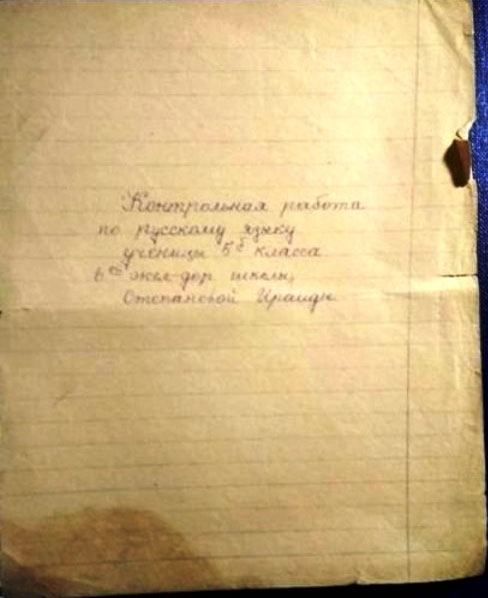 Контрольная работа
по русскому языку
ученицы 5б класса
6ой жел-дор школы,
Степановой Ираиды